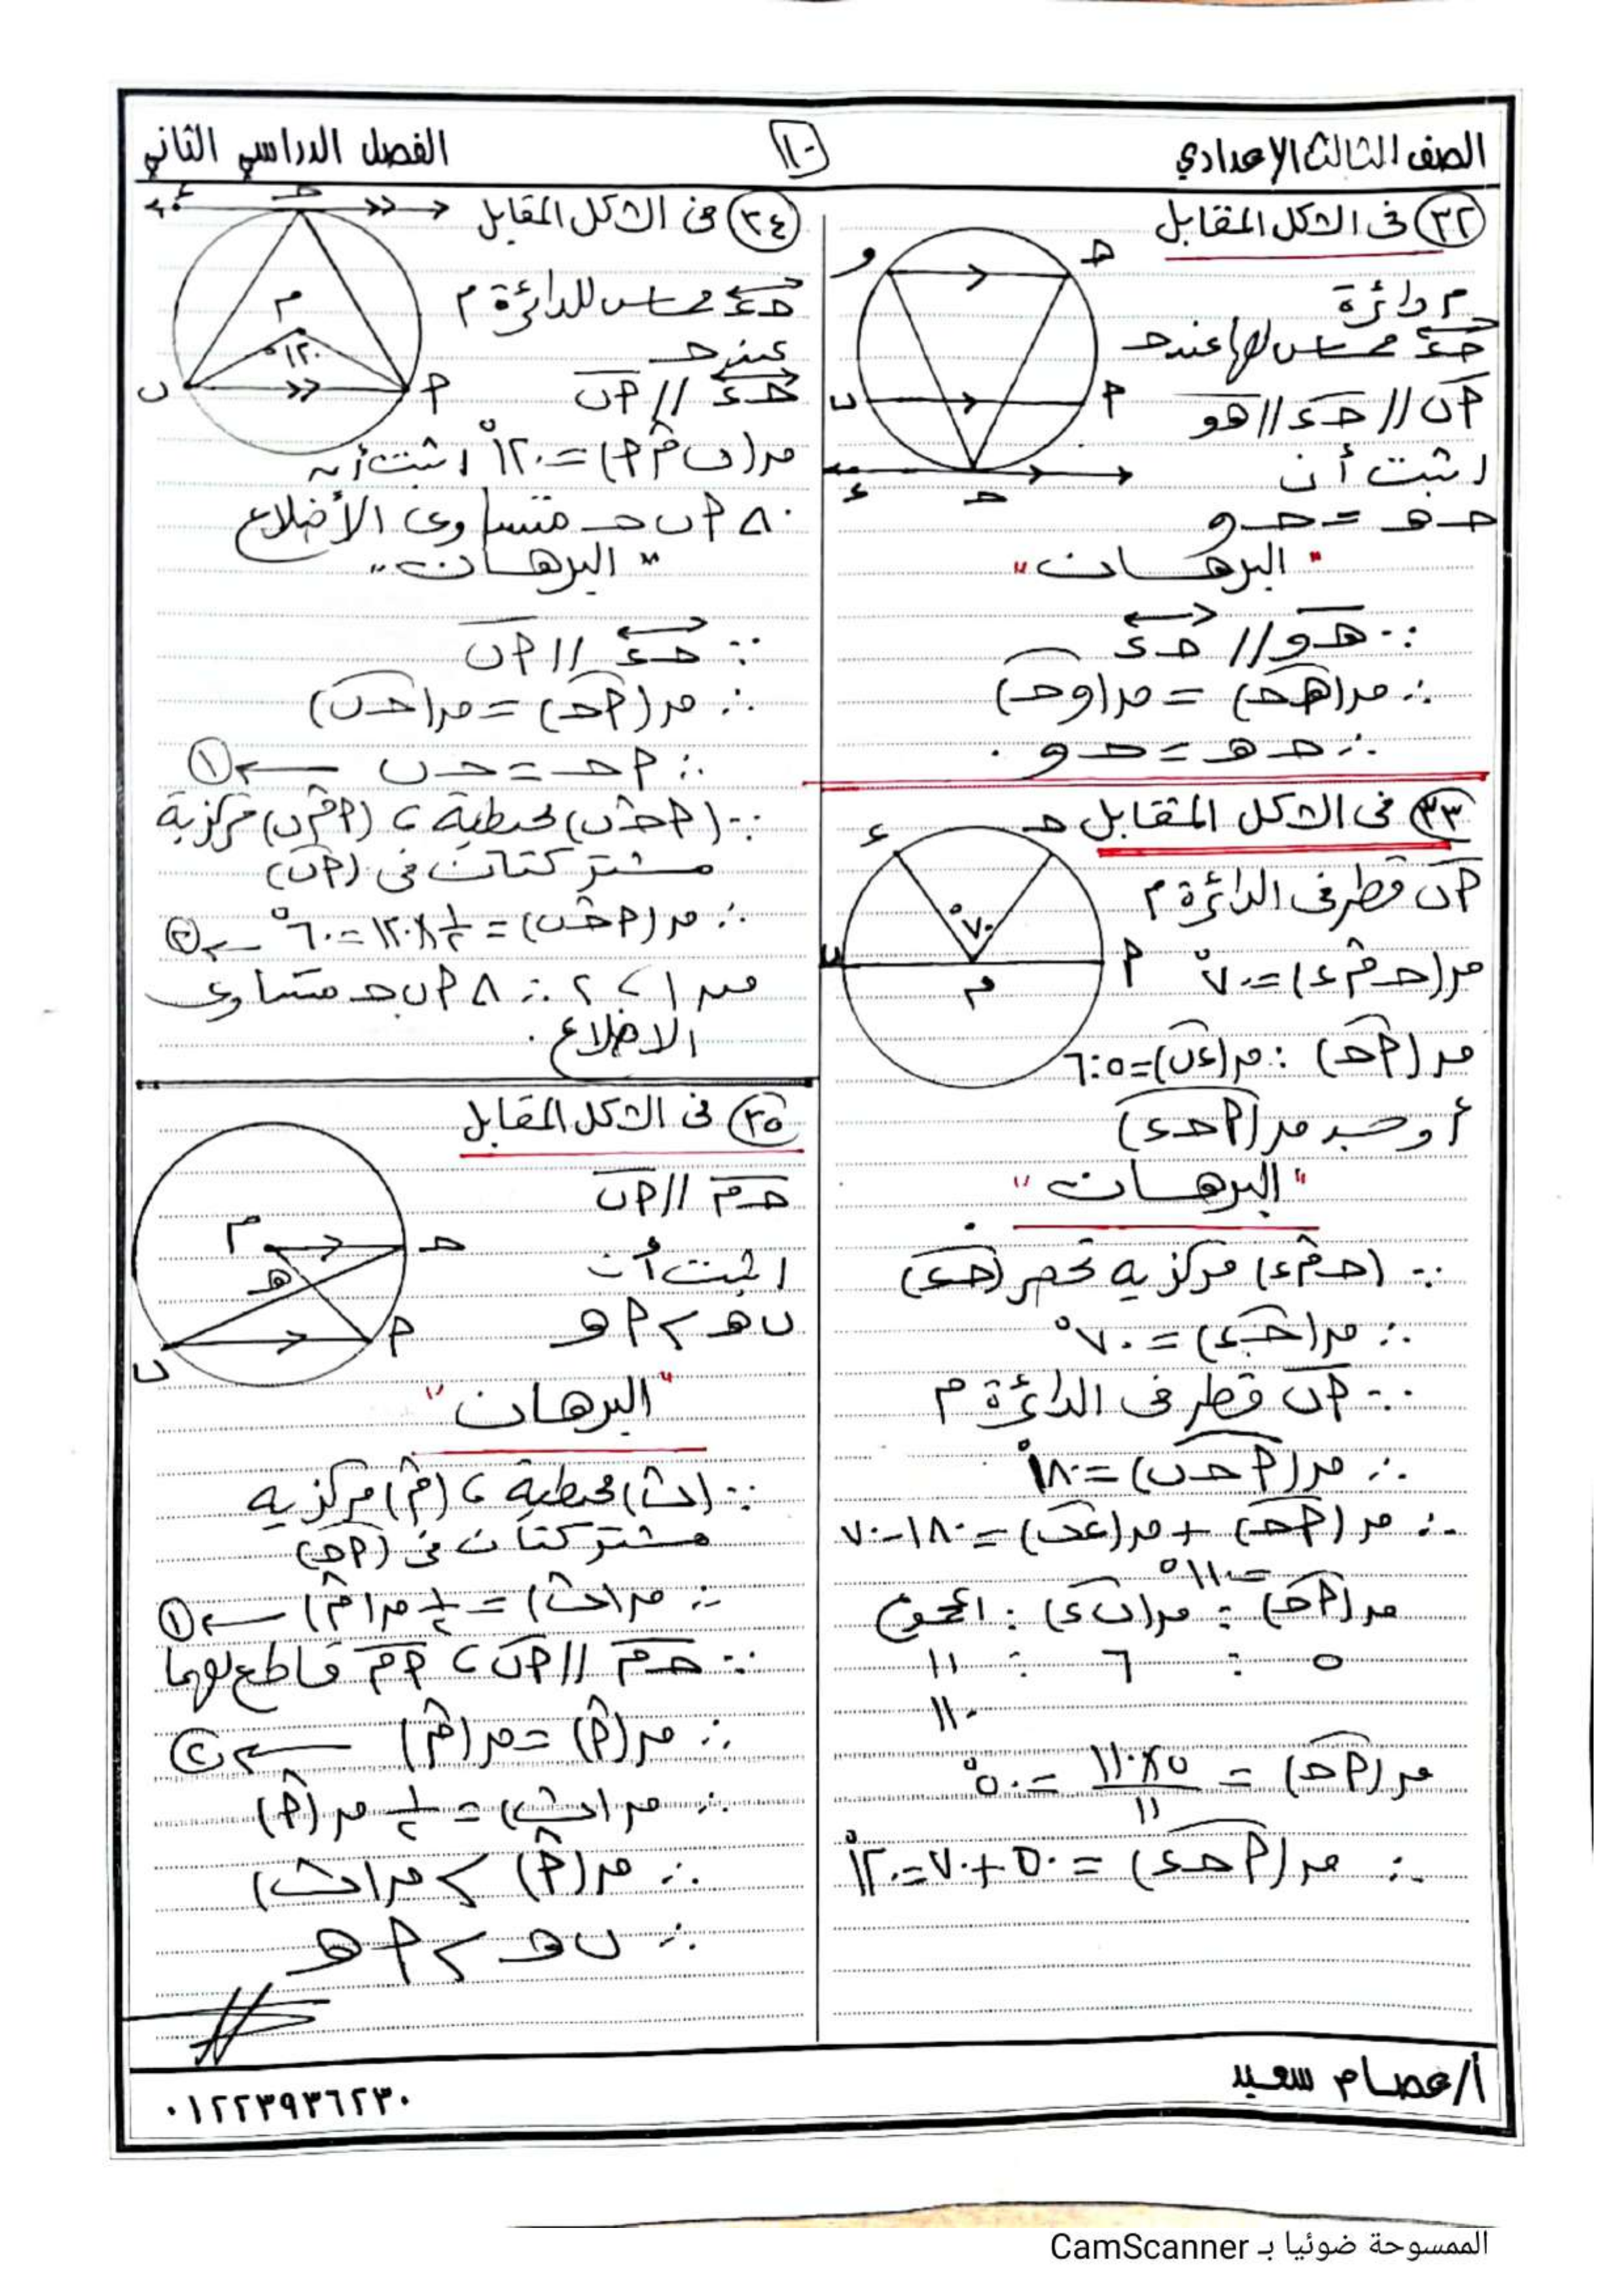 الصف الثالث الإعدادي
١٠
الفصل الدراسي الثاني
٣٢ فى الشكل المقابل
م دائرة
حـ ء مماس لها عند حـ
أ ب // حـ ء // هـ و
اثبت أن
حـ هـ = حـ و
و
هـ
ب
أ
ء
حـ
" البرهان "
∵ هـ و // حـ ء
∴ ق(هـ حـ) = ق(و حـ)
∴ حـ هـ = حـ و
٣٣ فى الشكل المقابل
أ ب قطر فى الدائرة م
ق(حـ م ء) = ٧٠°
ق(أ حـ) : ق(ء ب) = ٥ : ٦
أوجد ق(أ حـ ء)
ء
حـ
٧٠°
ب
أ
م
" البرهان "
∵ (حـ م ء) مركزيه تحصر (حـ ء)
∴ ق(حـ ء) = ٧٠°
∵ أ ب قطر فى الدائرة م
∴ ق(أ حـ ب) = ١٨٠°
∴ ق(أ حـ) + ق(ء ب) = ١٨٠ - ٧٠
= ١١٠°
ق(أ حـ) : ق(ب ء) : المجموع
٥ : ٦ : ١١
١١٠
ق(أ حـ) = ٥ × ١١٠ / ١١ = ٥٠°
∴ ق(أ حـ ء) = ٥٠ + ٧٠ = ١٢٠°
٣٤ فى الشكل المقابل
حـ ء مماس للدائرة م
عند حـ
حـ ء // أ ب
ق(ب م أ) = ١٢٠° اثبت أن
△ أ ب حـ متساوى الأضلاع
ء
حـ
م
١٢٠°
ب
أ
" البرهان "
∵ حـ ء // أ ب
∴ ق(أ حـ) = ق(حـ ب)
∴ أ حـ = حـ ب ← ١
∵ (أ حـ ب) محيطية ، (أ م ب) مركزية
مشتركتان فى (أ ب)
∴ ق(أ حـ ب) = ١/٢ × ١٢٠ = ٦٠° ← ٢
من ١ ، ٢ ∴ △ أ ب حـ متساوى
الاضلاع .
٣٥ فى الشكل المقابل
حـ م // أ ب
اثبت أن
ب هـ > أ هـ
م
حـ
هـ
أ
ب
" البرهان "
∵ (ب) محيطية ، (م) مركزيه
مشتركتان فى (أ حـ)
∴ ق(ب) = ١/٢ ق(م) ← ١
∵ حـ م // أ ب ، أ م قاطع لهما
∴ ق(أ) = ق(م) ← ٢
∴ ق(ب) = ١/٢ ق(أ)
∴ ق(أ) > ق(ب)
∴ ب هـ > أ هـ
أ/عصام سعيد
٠١٢٢٣٩٣٦٢٣٠
الممسوحة ضوئيا بـ CamScanner